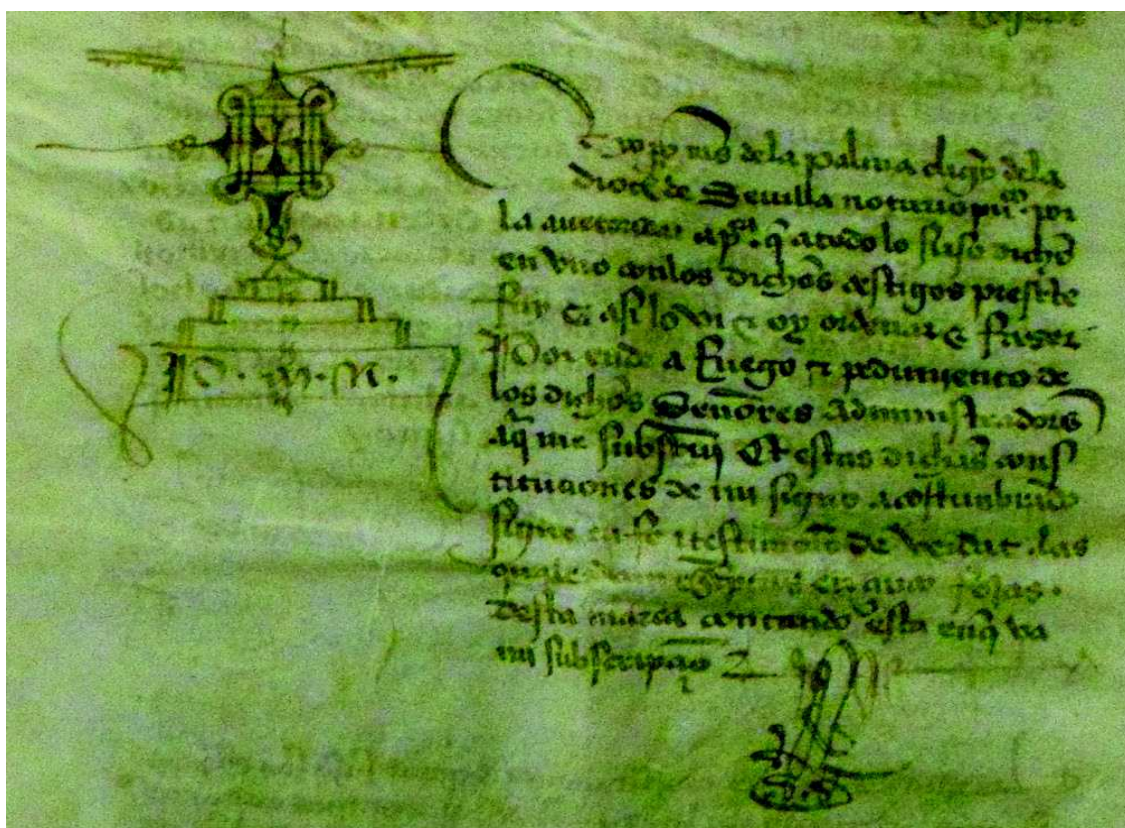 P. M. N.
de la palma cligo dela
dioc de Sevilla notario pu.co por
la auctoridat ap.ca q a todo lo suso dicho
en uno con los dichos testigos presete
fuy & asi lo vi & oy ordenar & faser
Por ende a Ruego & pedimiento de
los dichos Señores Administradores
aq me subscrivi Et estas dichas cons
tituciones de mi signo acostunbrado
signe en fe & testimonio de verdat. las
quales en fojas.
desta marca contando esta enq va
mi subscripçio